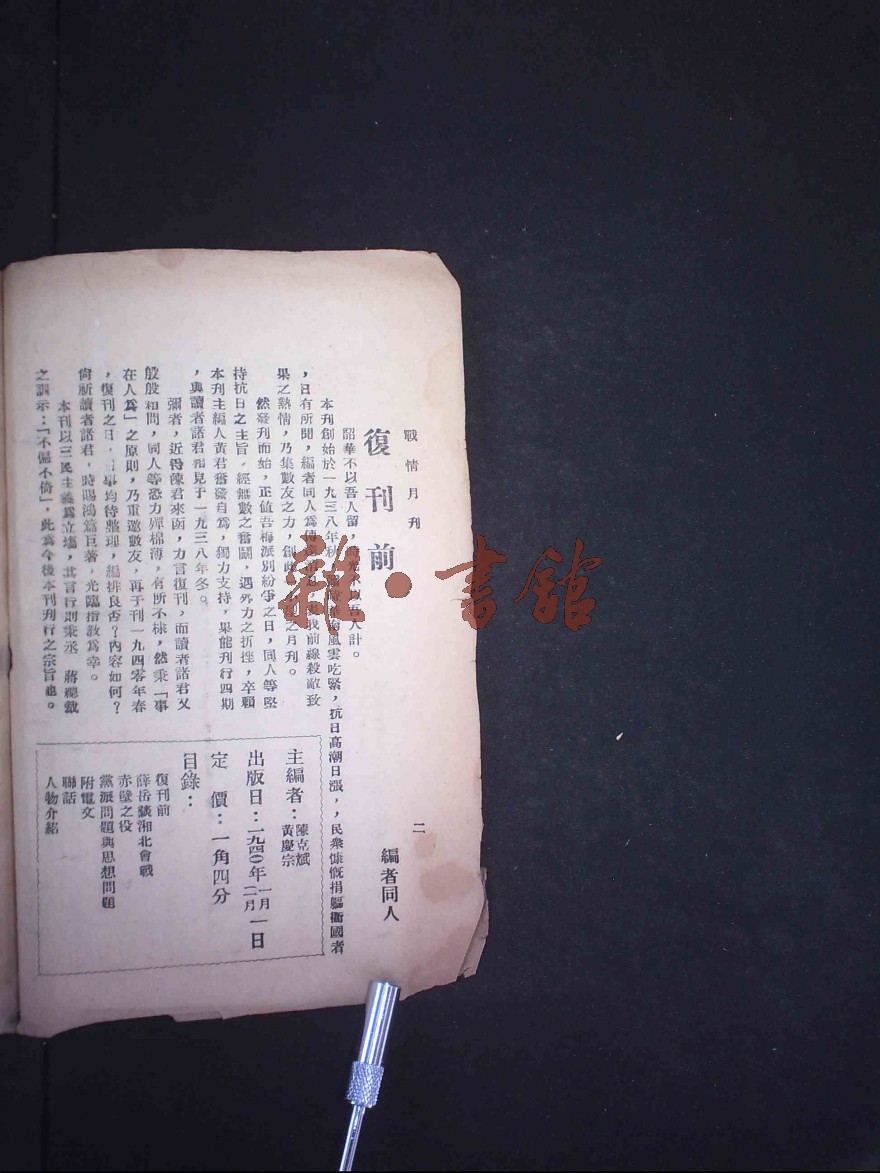 戰情月刊
二
復刊前
編者同人
韶華不以吾人留，時光不以吾人計。
本刊創始於一九三八年秋，風雲吃緊，抗日高潮日漲，，民衆慷慨捐軀衞國者
，日有所聞，編者同人爲傳我前線殺敵致
果之熱情，乃集數友之力，創此之月刊。
然發刊而始，正値吾梅派別紛爭之日，同人等堅
持抗日之主旨，經無數之奮鬪，遇外力之折挫，卒賴
本刊主編人黃君奮發自爲，獨力支持，果能刊行四期
，與讀者諸君相見于一九三八年冬。
彌者，近得陳君來函，力言復刊，而讀者諸君又
般般相問，同人等恐力殫棉薄，有所不棣，然秉「事
在人爲」之原則，乃重邀數友，再于刊一九四零年春
，復刊之日，均待整理，編排良否？內容如何？
尙祈讀者諸君，時賜鴻篇巨著，光臨指敎爲幸。
本刊以三民主義爲立塲，其言行則秉丞　蔣總裁
之訓示：「不偏不倚」，此爲今後本刊刋行之宗旨也。
主編者：陳克斌
黃慶宗
出版日：一九四〇年一月二月一日
定　價：一角四分
目錄：
復刊前
薛岳談湘北會戰
赤壁之役
黨派問題與思想問題
附電文
聯話
人物介紹
雜·書館